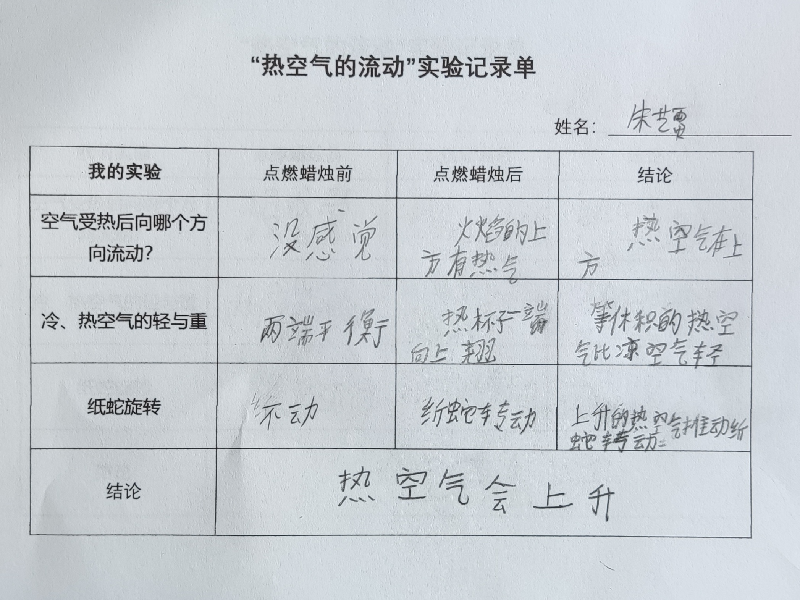 “热空气的流动”实验记录单
姓名: 朱艺
我的实验 点燃蜡烛前 点燃蜡烛后 结论
空气受热后向哪个方
向流动?
没感觉
火焰的上
方有热气
热空气在上
方
冷、热空气的轻与重
两端平衡
热杯子一端
向上翘
等体积的热空
气比凉空气轻
纸蛇旋转
不动
纸蛇转动
上升的热空气推动纸
蛇转动
结论
热空气会上升